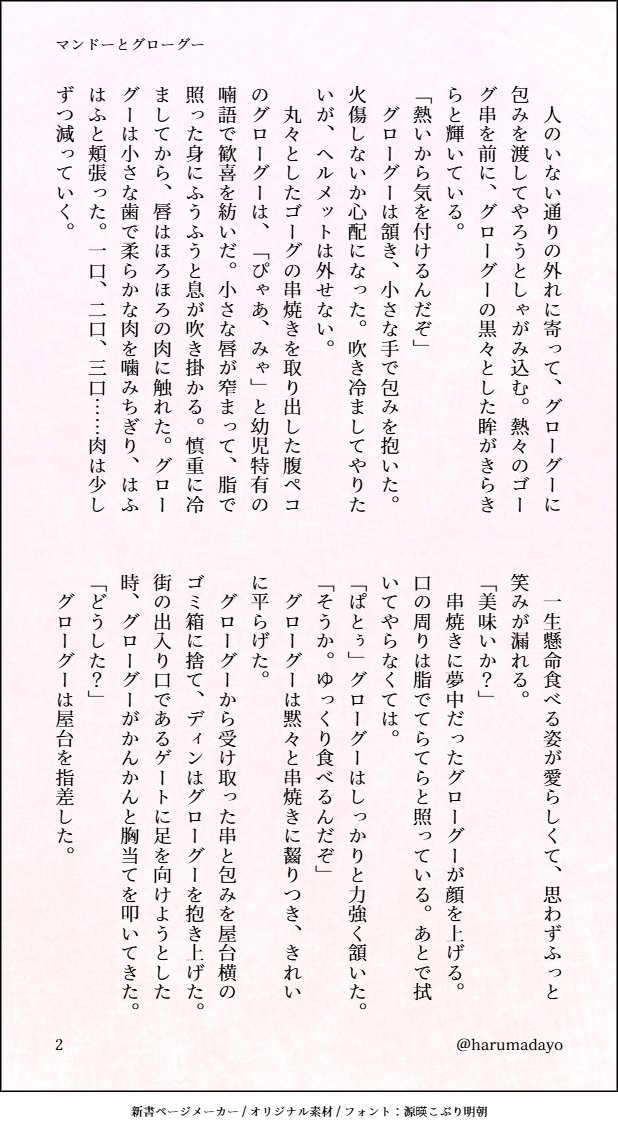 マンドーとグローグー
　人のいない通りの外れに寄って、グローグーに
包みを渡してやろうとしゃがみ込む。熱々のゴー
グ串を前に、グローグーの黒々とした眸がきらき
らと輝いている。
「熱いから気を付けるんだぞ」
　グローグーは頷き、小さな手で包みを抱いた。
火傷しないか心配になった。吹き冷ましてやりた
いが、ヘルメットは外せない。
　丸々としたゴーグの串焼きを取り出した腹ペコ
のグローグーは、「ぴゃあ、みゃ」と幼児特有の
喃語で歓喜を紡いだ。小さな唇が窄まって、脂で
照った身にふうふうと息が吹き掛かる。慎重に冷
ましてから、唇はほろほろの肉に触れた。グロー
グーは小さな歯で柔らかな肉を噛みちぎり、はふ
はふと頬張った。一口、二口、三口……肉は少し
ずつ減っていく。
　一生懸命食べる姿が愛らしくて、思わずふっと
笑みが漏れる。
「美味いか？」
　串焼きに夢中だったグローグーが顔を上げる。
口の周りは脂でてらてらと照っている。あとで拭
いてやらなくては。
「ぱとぅ」グローグーはしっかりと力強く頷いた。
「そうか。ゆっくり食べるんだぞ」
　グローグーは黙々と串焼きに齧りつき、きれい
に平らげた。
　グローグーから受け取った串と包みを屋台横の
ゴミ箱に捨て、ディンはグローグーを抱き上げた。
街の出入り口であるゲートに足を向けようとした
時、グローグーがかんかんと胸当てを叩いてきた。
「どうした？」
　グローグーは屋台を指差した。
2
@harumadayo
新書ページメーカー / オリジナル素材 / フォント：源暎こぶり明朝